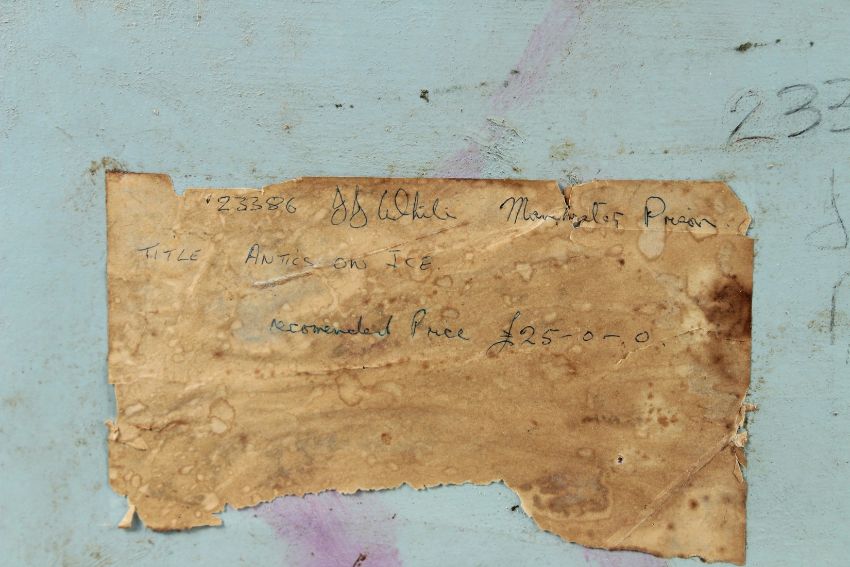 23386 JJ White Manchester Prison.
TITLE ANTICS ON ICE.
recomended Price £25-0-0.
233